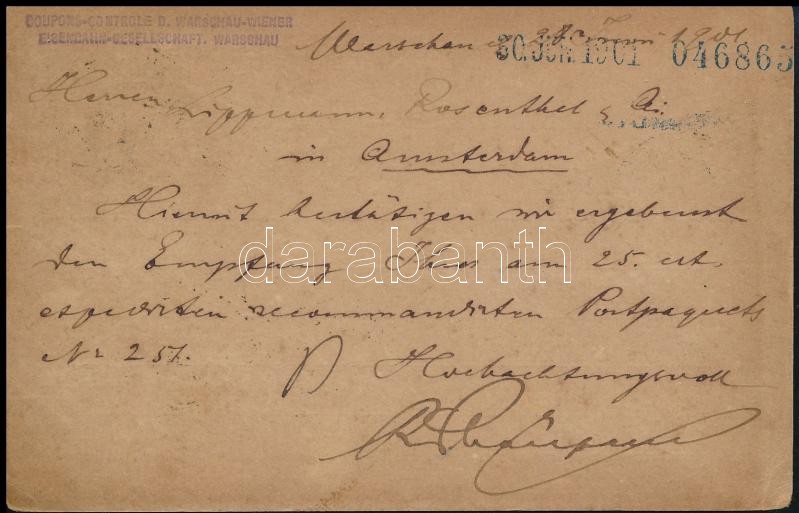 COUPONS-CONTROLE D. WARSCHAU-WIENER
EISENBAHN-GESELLSCHAFT. WARSCHAU
Warschau 1901
30. JUN. 1901 046865
Herren Lippmann, Rosenthal &
in Amsterdam
Hiermit bestätigen wir ergebenst
den Empfang Ihres am 25. crt.
expedirten recommandirten Postpaquets
No 251.
Hochachtungsvoll
darabanth